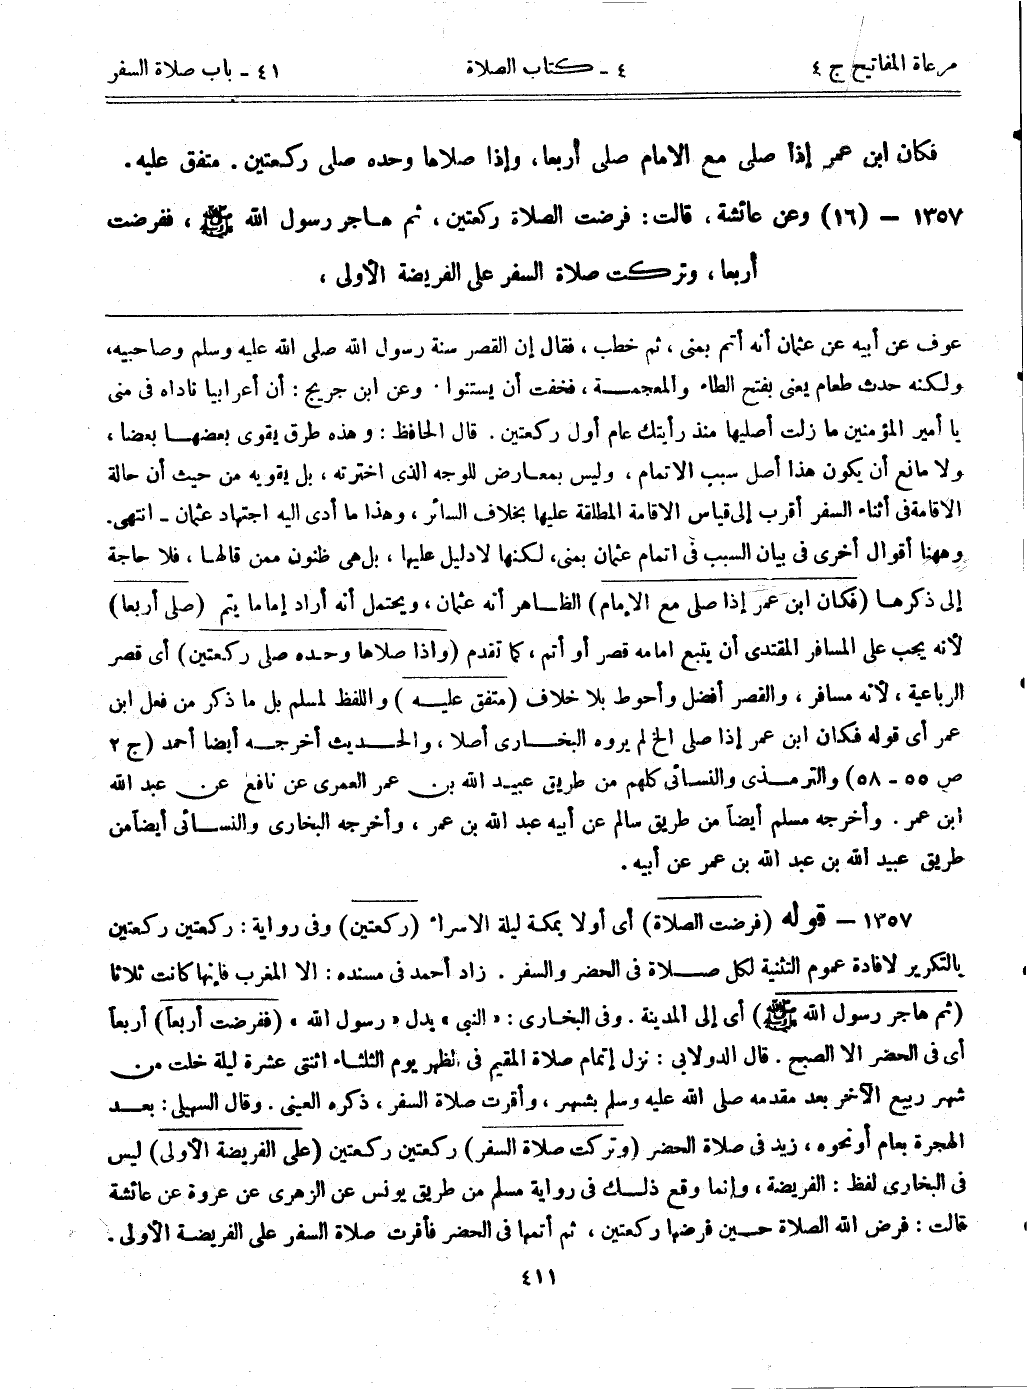 مرعاة المفاتيح ج ٤
٤ - كتاب الصلاة
٤١ - باب صلاة السفر
فكان ابن عمر إذا صلى مع الامام صلى أربعا، وإذا صلاها وحده صلى ركعتين. متفق عليه.
١٣٥٧ - (١٦) وعن عائشة، قالت: فرضت الصلاة ركعتين، ثم هاجر رسول الله ﷺ، ففرضت
أربعا، وتركت صلاة السفر على الفريضة الأولى،
عوف عن أبيه عن عثمان أنه أتم بمنى، ثم خطب، فقال إن القصر سنة رسول الله صلى الله عليه وسلم وصاحبيه،
ولكنه حدث طغام يعنى بفتح الطاء والمعجمة، فخفت أن يستنوا. وعن ابن جريج: أن أعرابيا ناداه فى منى
يا أمير المؤمنين ما زلت أصليها منذ رأيتك عام أول ركعتين. قال الحافظ: وهذه طرق يقوى بعضها بعضا،
ولا مانع أن يكون هذا أصل سبب الاتمام، وليس بمعارض للوجه الذى اخترته، بل يقويه من حيث أن حالة
الاقامة فى أثناء السفر أقرب إلى قياس الاقامة المطلقة عليها بخلاف السائر، وهذا ما أدى اليه اجتهاد عثمان - انتهى.
وههنا أقوال أخرى فى بيان السبب فى اتمام عثمان بمنى، لكنها لا دليل عليها، بل هى ظنون ممن قالها، فلا حاجة
إلى ذكرها (فكان ابن عمر إذا صلى مع الإمام) الظاهر أنه عثمان، ويحتمل أنه أراد إماما يتم (صلى أربعا)
لأنه يجب على المسافر المقتدى أن يتبع امامه قصر أو أتم، كما تقدم (واذا صلاها وحده صلى ركعتين) أى قصر
الرباعية، لأنه مسافر، والقصر أفضل وأحوط بلا خلاف (متفق عليه) واللفظ لمسلم بل ما ذكر من فعل ابن
عمر أى قوله فكان ابن عمر إذا صلى الخ لم يروه البخارى أصلا، والحديث أخرجه أيضا أحمد (ج ٢
ص ٥٥ - ٥٨) والترمذى والنسائى كلهم من طريق عبيد الله بن عمر العمرى عن نافع عن عبد الله
ابن عمر. وأخرجه مسلم أيضاً من طريق سالم عن أبيه عبد الله بن عمر، وأخرجه البخارى والنسائى أيضاً من
طريق عبيد الله بن عبد الله بن عمر عن أبيه.
١٣٥٧ - قوله (فرضت الصلاة) أى أولا بمكة ليلة الاسراء (ركعتين) وفى رواية: ركعتين ركعتين
بالتكرير لافادة عموم التثنية لكل صلاة فى الحضر والسفر. زاد أحمد فى مسنده: الا المغرب فإنها كانت ثلاثا
(ثم هاجر رسول الله ﷺ) أى إلى المدينة. وفى البخارى: «النبى» بدل «رسول الله» (ففرضت أربعاً) أربعاً
أى فى الحضر الا الصبح. قال الدولابى: نزل إتمام صلاة المقيم فى الظهر يوم الثلثاء اثنتى عشرة ليلة خلت من
شهر ربيع الآخر بعد مقدمه صلى الله عليه وسلم بشهر، وأقرت صلاة السفر، ذكره العينى. وقال السهيلى: بعد
الهجرة بعام أو نحوه، زيد فى صلاة الحضر (وتركت صلاة السفر) ركعتين ركعتين (على الفريضة الأولى) ليس
فى البخارى لفظ: الفريضة، وإنما وقع ذلك فى رواية مسلم من طريق يونس عن الزهرى عن عروة عن عائشة
قالت: فرض الله الصلاة حين فرضها ركعتين، ثم أتمها فى الحضر فأقرت صلاة السفر على الفريضة الأولى.
٤١١